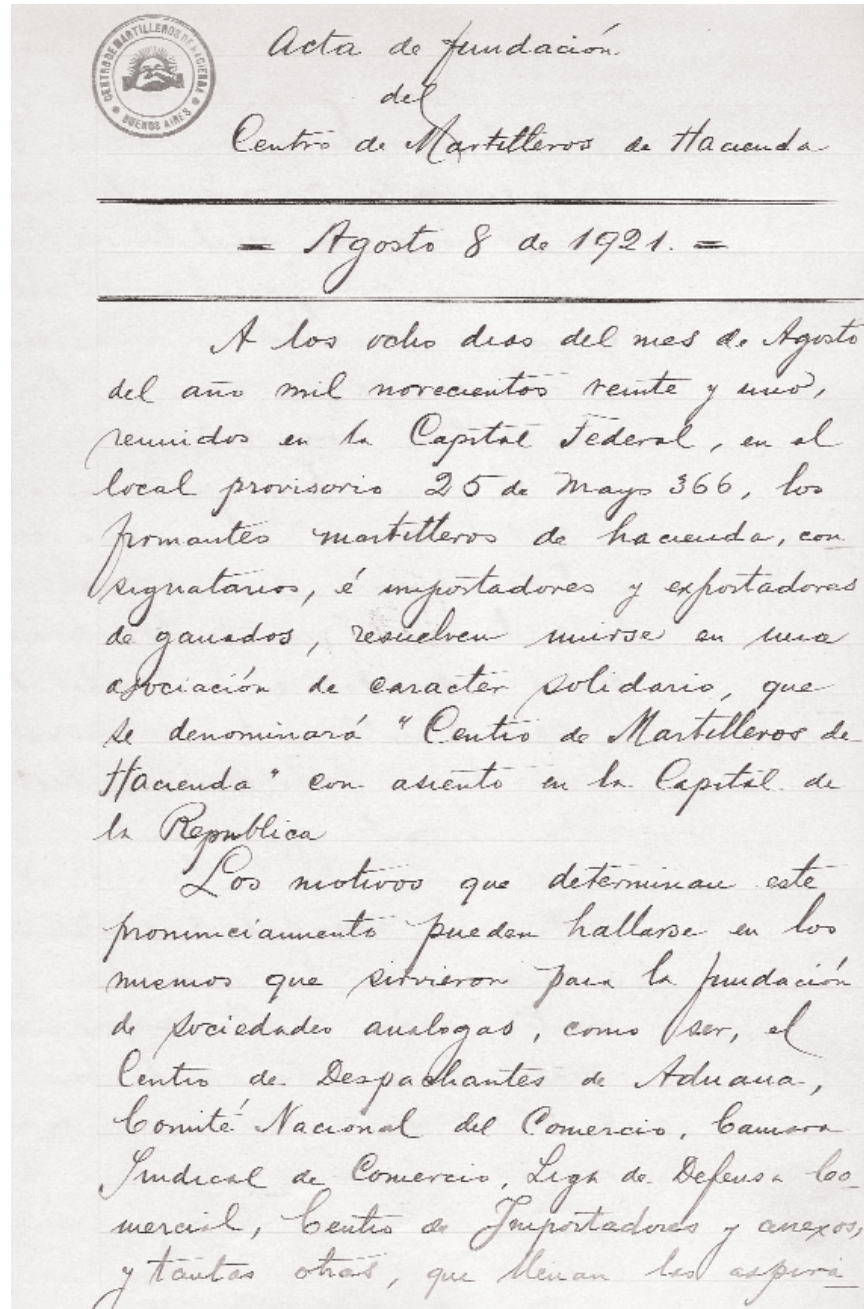 CENTRO DE MARTILLEROS DE HACIENDA
BUENOS AIRES
Acta de fundación
del
Centro de Martilleros de Hacienda
= Agosto 8 de 1921. =
A los ocho dias del mes de Agosto
del año mil novecientos veinte y uno,
reunidos en la Capital Federal, en el
local provisorio 25 de Mayo 366, los
firmantes martilleros de hacienda, con
signatarios, é importadores y exportadores
de ganados, resuelven unirse en una
asociación de caracter solidario, que
se denominará "Centro de Martilleros de
Hacienda" con asiento en la Capital de
la Republica
Los motivos que determinan este
pronunciamiento pueden hallarse en los
mismos que sirvieron para la fundación
de sociedades analogas, como ser, el
Centro de Despachantes de Aduana,
Comité Nacional del Comercio, Camara
Sindical de Comercio, Liga de Defensa Co-
mercial, Centro de Importadores y anexos,
y tantas otras, que llenan las aspira